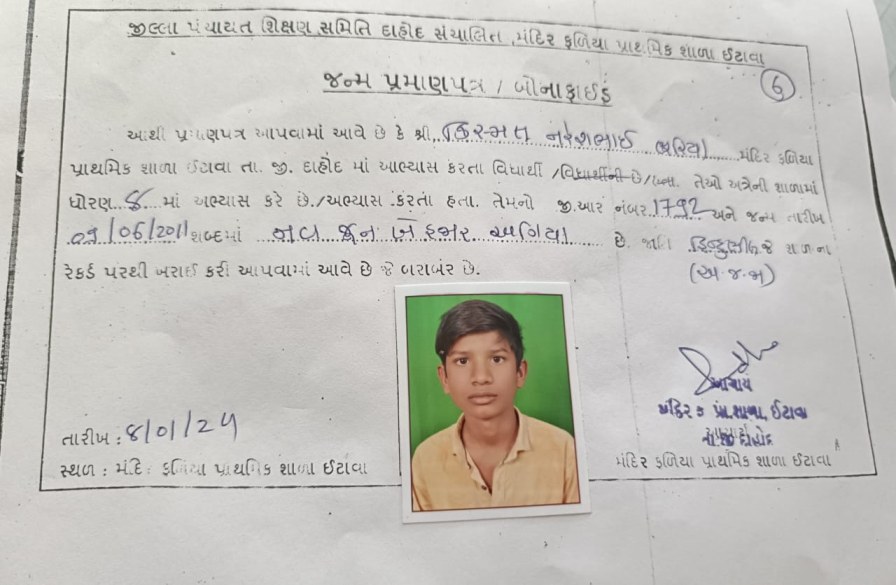 જીલ્લા પંચાયત શિક્ષણ સમિતિ દાહોદ સંચાલિત મંદિર ફળિયા પ્રાથમિક શાળા ઈટાવા
6
જન્મ પ્રમાણપત્ર / બોનાફાઈડ
આથી પ્રમાણપત્ર આપવામાં આવે છે કે શ્રી. કિસ્મત નરેશભાઈ મંદિર ફળિયા
પ્રાથમિક શાળા ઈટાવા તા. જી. દાહોદ માં આભ્યાસ કરતા વિધાર્થી /વિધાર્થીની છે/ તેઓ અત્રેની શાળામાં
ધોરણ 8 માં અભ્યાસ કરે છે./અભ્યાસ કરતા હતા. તેમનો જી.આર નંબર 1792 અને જન્મ તારીખ
09/06/2011 શબ્દમાં નવ જૂન બે હજાર અગિયાર છે. જાતિ હિન્દુ
રેકર્ડ પરથી ખરાઈ કરી આપવામાં આવે છે જે બરાબર છે. (અ.જ.જા)
આચાર્ય
તારીખ : 8/01/24
મંદિર ફ પ્રા.શાળા, ઈટાવા
સ્થળ : મંદિર ફળિયા પ્રાથમિક શાળા ઈટાવા
મંદિર ફળિયા પ્રાથમિક શાળા ઈટાવા